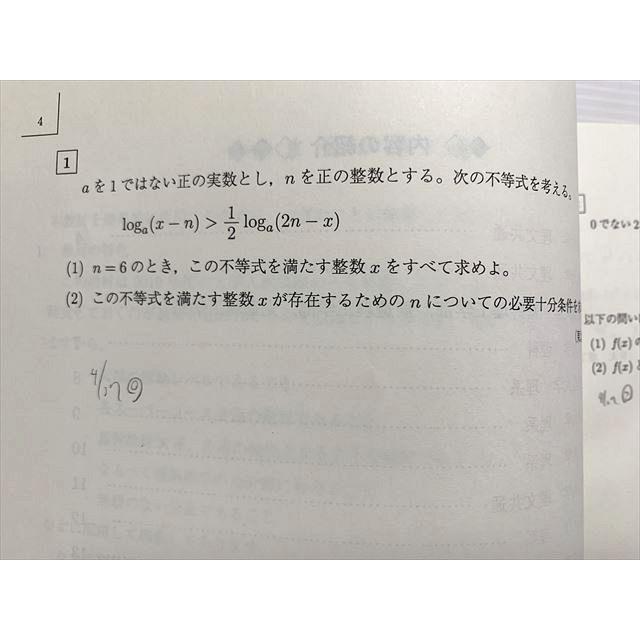 4
1
aを1ではない正の実数とし，nを正の整数とする。次の不等式を考える。
log_a(x−n) > 1/2 log_a(2n−x)
(1) n=6のとき，この不等式を満たす整数xをすべて求めよ。
(2) この不等式を満たす整数xが存在するためのnについての必要十分条件を
4/27
0でない2
以下の問い
(1) f(x)の
(2) f(x)と